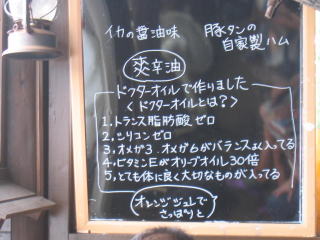 イカの醤油味
豚タンの
自家製ハム
爽辛油
ドクターオイルで作りました
<ドクターオイルとは?>
1,トランス脂肪酸ゼロ
2,シリコンゼロ
3,オメガ3.オメガ6がバランスよく入ってる
4,ビタミンEがオリーブオイル30倍
5,とても体に良く大切なものが入ってる
オレンジジュレで
さっぱりと